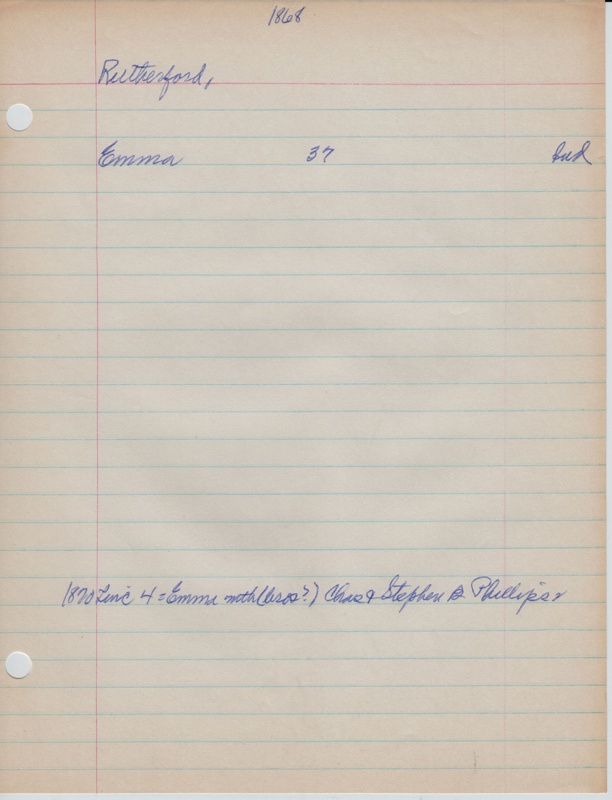 1868
Rutherford,
Emma 37 Ind
1870 Linc 4 = Emma with (bros?) Chas & Stephen B. Phillips